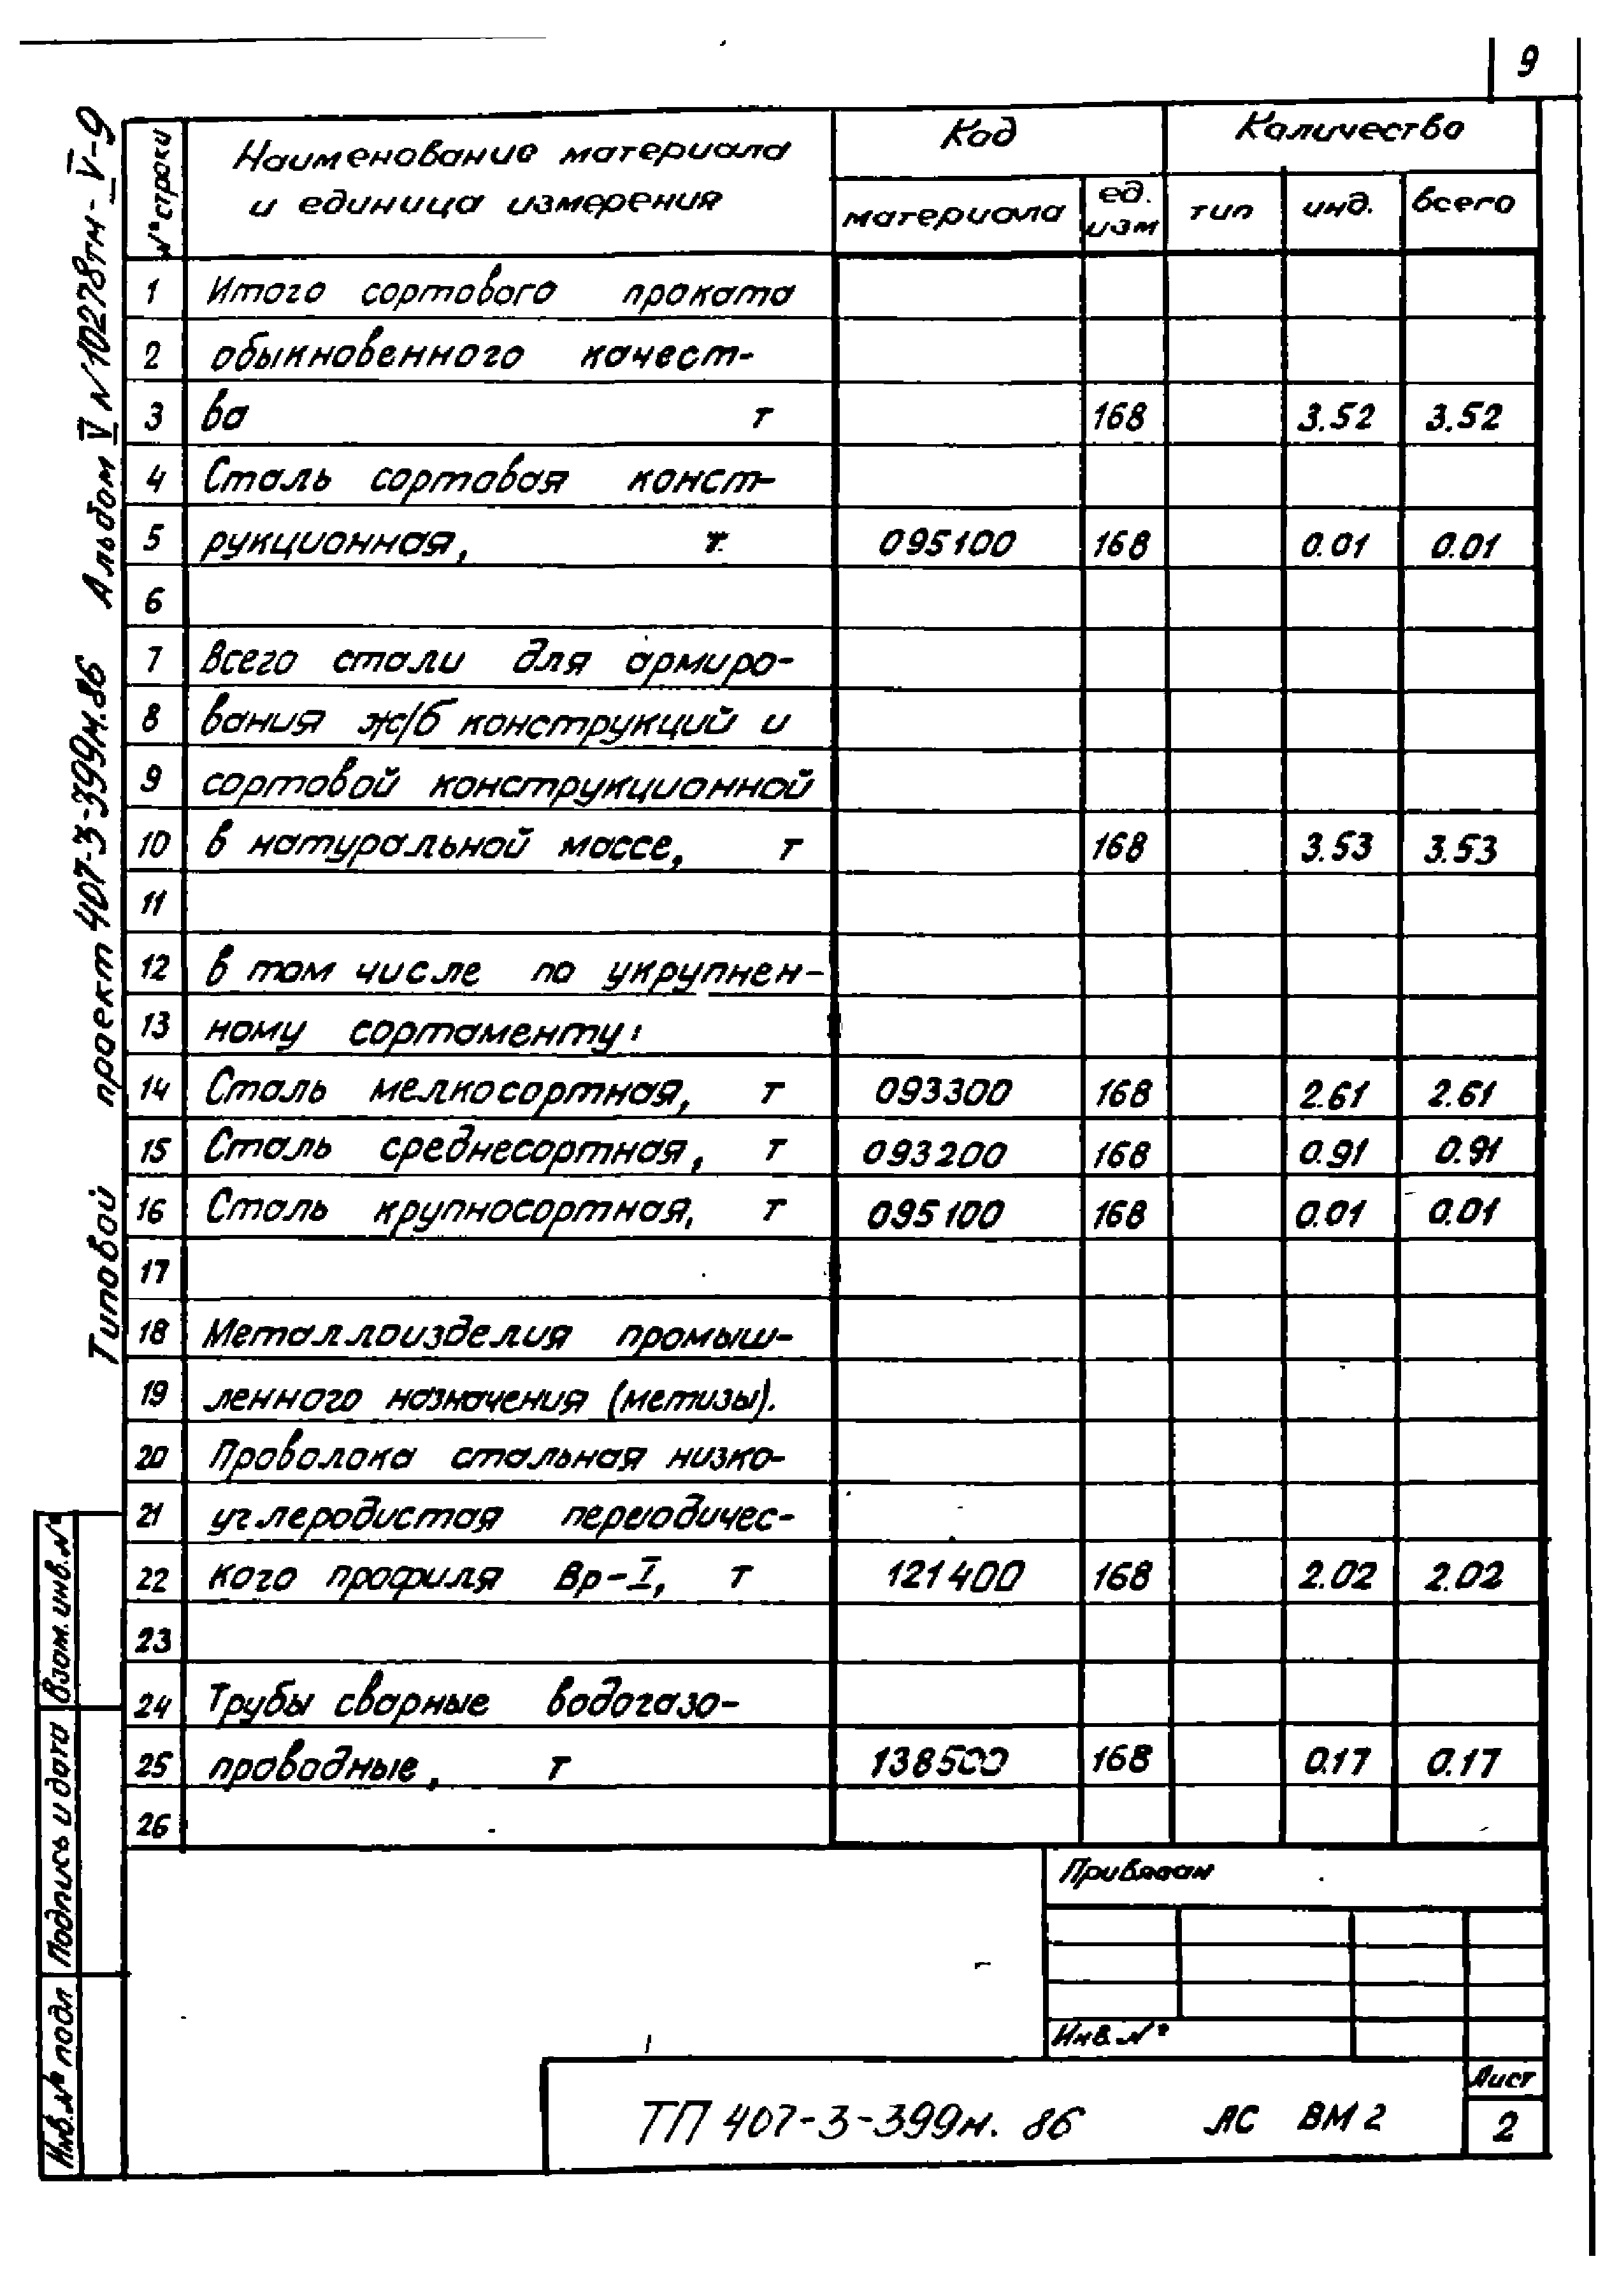 9
Типовой проект 407-3-399м.86 Альбом V N 10278тм-V-9
№ строки
Наименование материала
и единица измерения
Код
Количество
материала
ед. изм
тип
инд.
всего
1 Итого сортового проката
2 обыкновенного качест-
3 ва т 168 3.52 3.52
4 Сталь сортовая конст-
5 рукционная, т 095100 168 0.01 0.01
6
7 Всего стали для армиро-
8 вания ж/б конструкций и
9 сортовой конструкционной
10 в натуральной массе, т 168 3.53 3.53
11
12 в том числе по укрупнен-
13 ному сортаменту:
14 Сталь мелкосортная, т 093300 168 2.61 2.61
15 Сталь среднесортная, т 093200 168 0.91 0.91
16 Сталь крупносортная, т 095100 168 0.01 0.01
17
18 Металлоизделия промыш-
19 ленного назначения (метизы).
20 Проволока стальная низко-
21 углеродистая периодичес-
22 кого профиля Вр-I, т 121400 168 2.02 2.02
23
24 Трубы сварные водогазо-
25 проводные, т 138500 168 0.17 0.17
26
Взам. инв. №
Подпись и дата
Инв. № подл
Привязан
Инв. №
ТП 407-3-399м. 86 ЛС ВМ 2
Лист
2